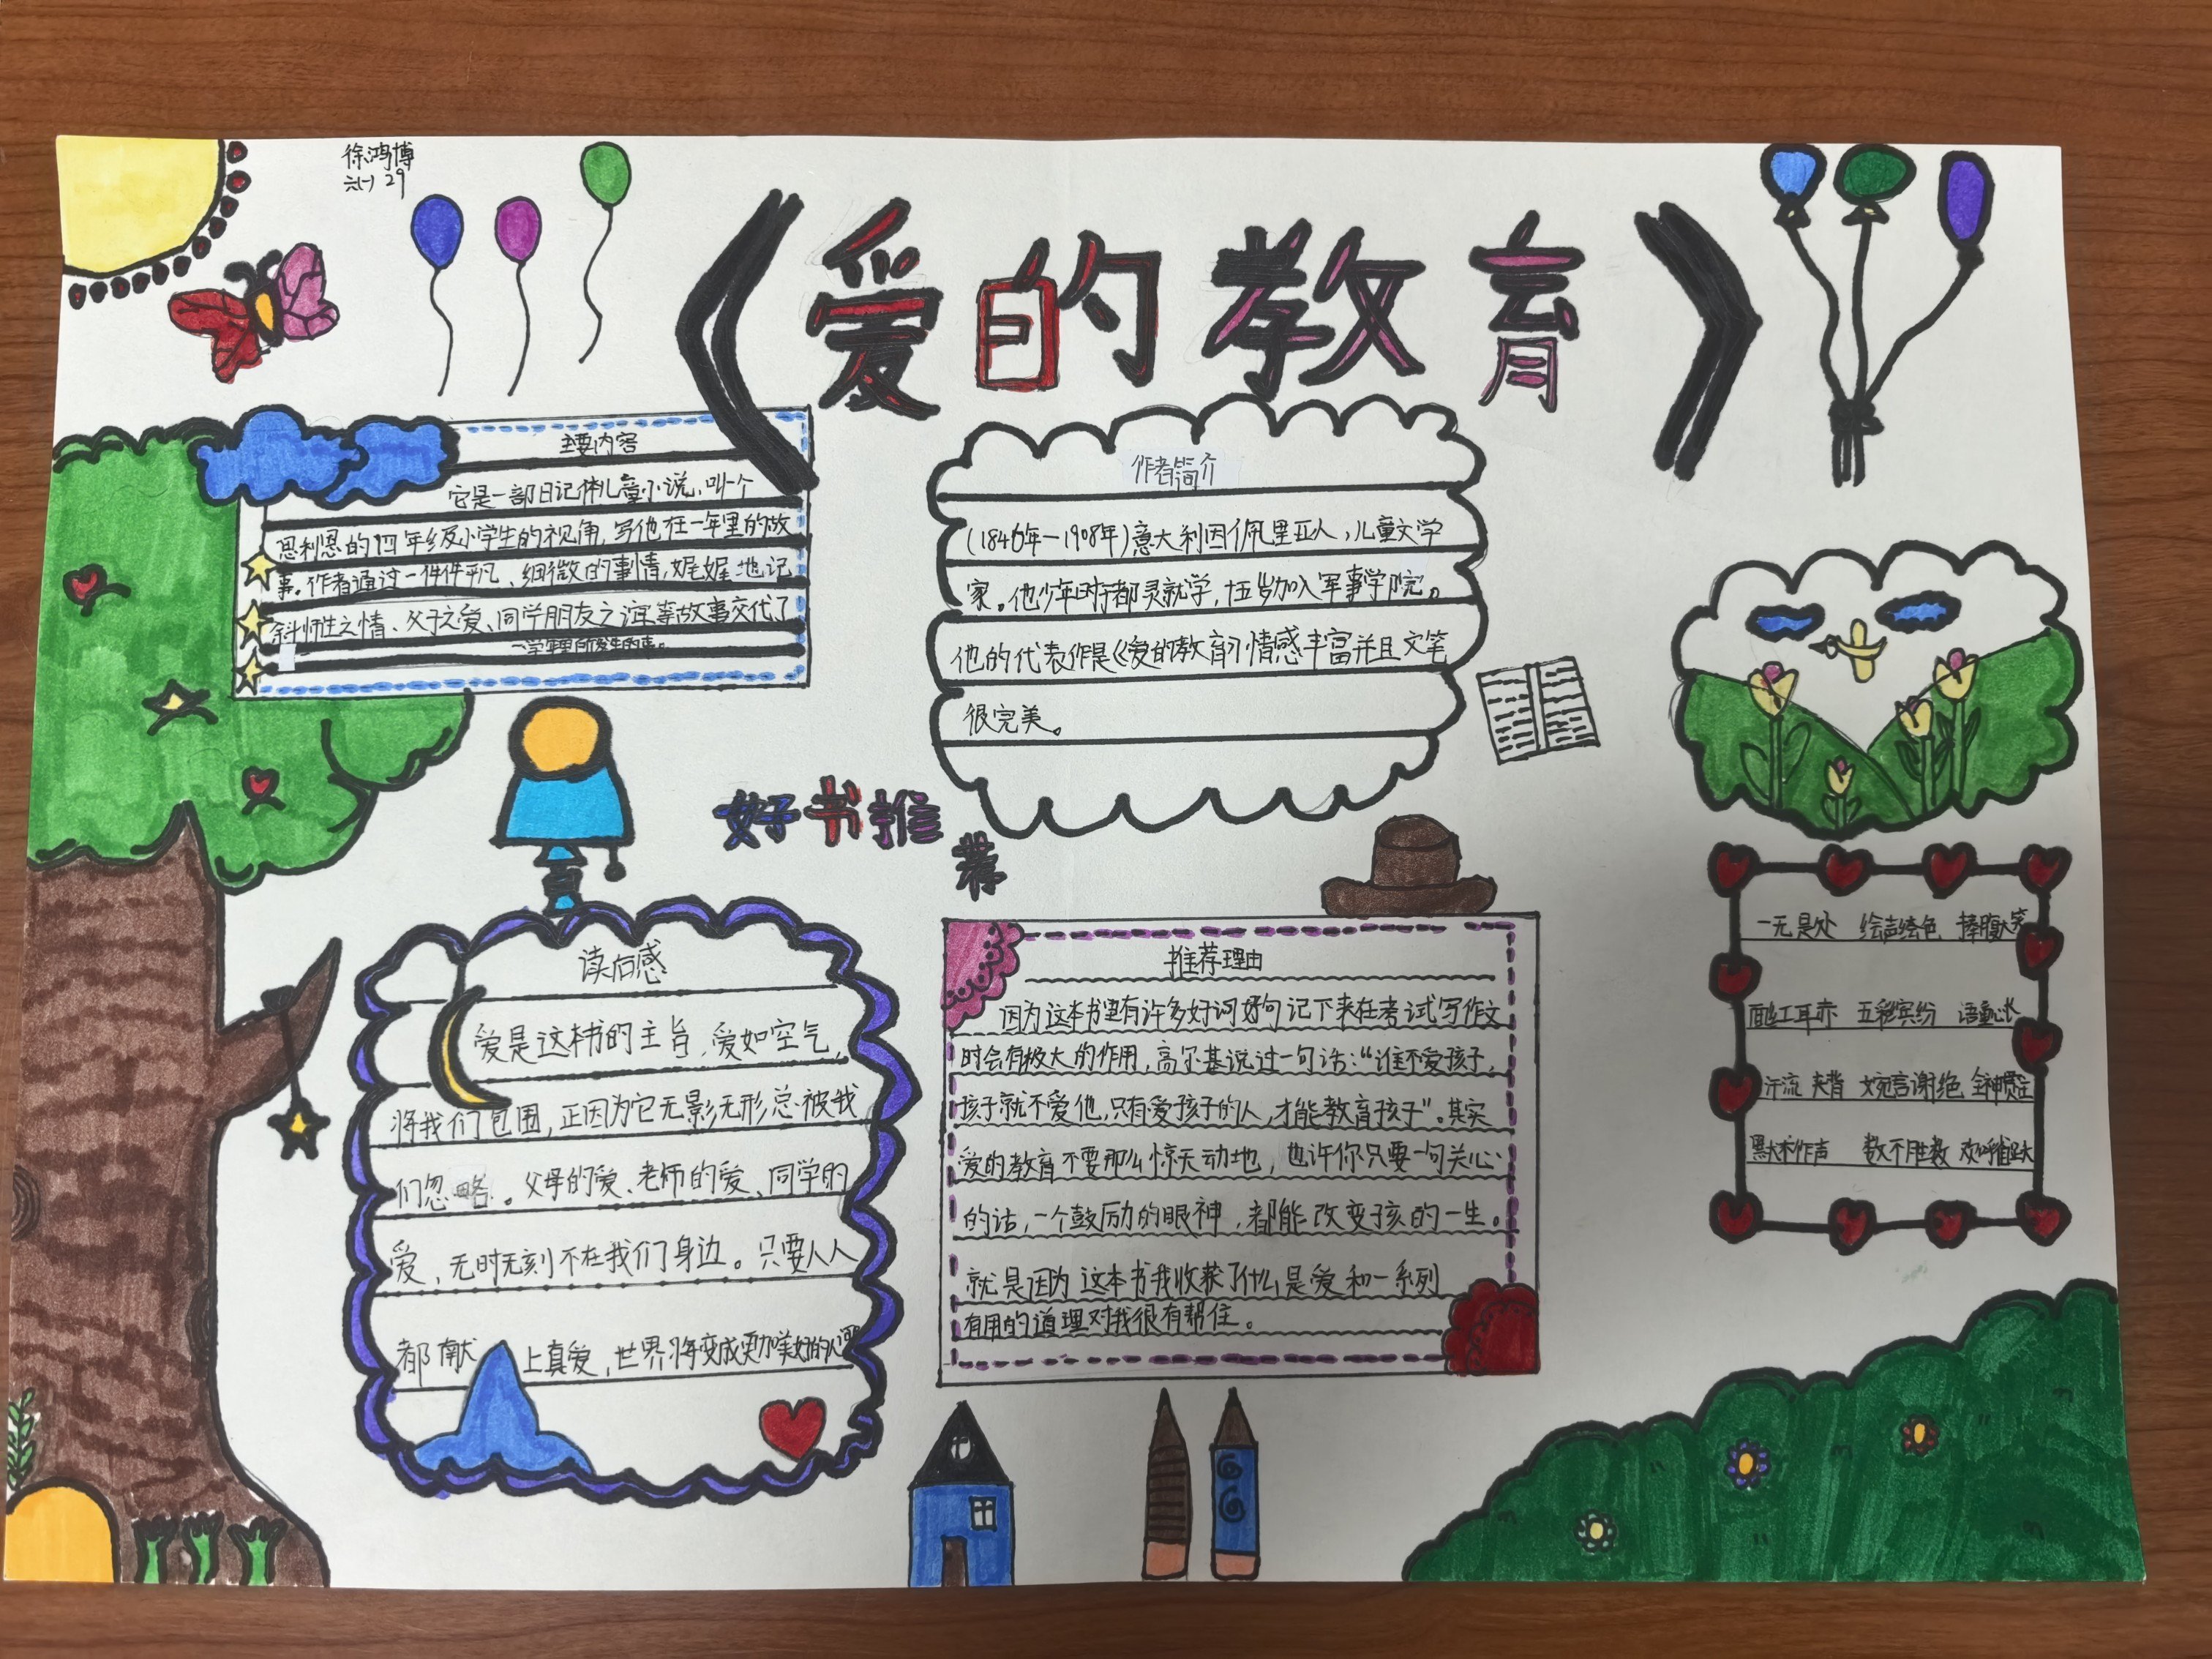 徐鸿博
六(一) 29
《爱的教育》
主要内容
它是一部日记体儿童小说,叫一个
恩利恩的四年级小学生的视角,写他在一年里的故
事。作者通过一件件平凡、细微的事情,娓娓地记
师生之情、父子之爱、同学朋友之谊等故事交代了
作者简介
(1846年—1908年)意大利因佩里亚人,儿童文学
家。他少年时都灵就学,十五岁加入军事学院。
他的代表作是《爱的教育》情感丰富并且文笔
很完美。
好书推
荐
读后感
爱是这本书的主旨,爱如空气,
将我们包围,正因为它无影无形总被我
们忽略。父母的爱、老师的爱、同学的
爱,无时无刻不在我们身边。只要人人
都献上真爱,世界将变成更加美好的人间
推荐理由
因为这本书里有许多好词好句记下来在考试写作文
时会有极大的作用,高尔基说过一句话:“谁不爱孩子,
孩子就不爱他,只有爱孩子的人,才能教育孩子”。其实
爱的教育不要那么惊天动地,也许你只要一句关心
的话,一个鼓励的眼神,都能改变孩的一生。
就是因为这本书我收获了什么是爱和一系列
有用的道理对我很有帮住。
一无是处 绘声绘色 捧腹大笑
面红耳赤 五彩缤纷 语重心长
汗流夹背 婉言谢绝 全神贯注
默不作声 数不胜数